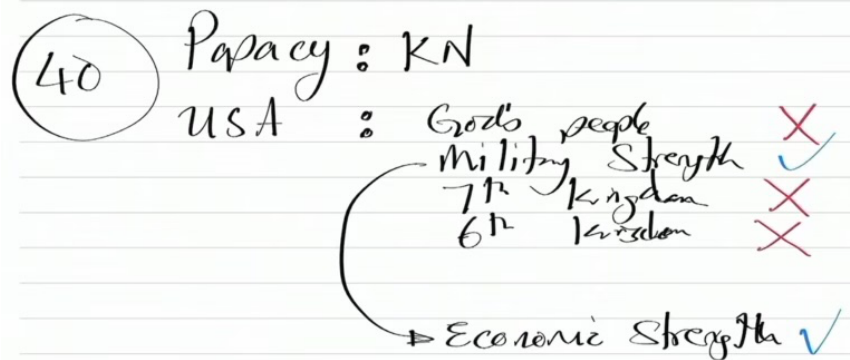 40
Papacy : KN
USA : God's people X
Military Strength ✓
7th kingdom X
6th kingdom X
Economic Strength ✓